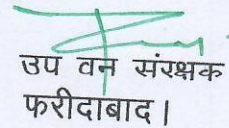 उप वन संरक्षक
फरीदाबाद।